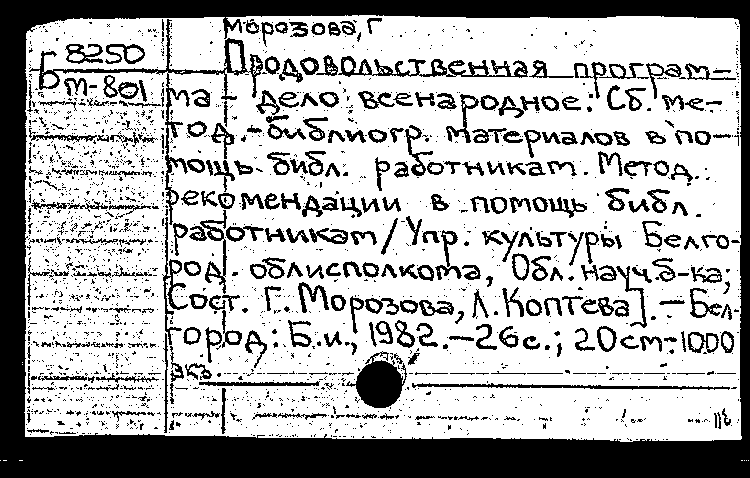 Морозова, Г
Б 8250
м-801
Продовольственная програм-
ма - дело всенародное: Сб. ме-
тод.-библиогр. материалов в по-
мощь библ. работникам. Метод.
рекомендации в помощь библ.
работникам / Упр. культуры Белго-
род. облисполкома, Обл. науч. б-ка;
Сост. Г. Морозова, Л. Коптева]. - Бел-
город: Б.и., 1982. - 26с.; 20см-1000
экз.